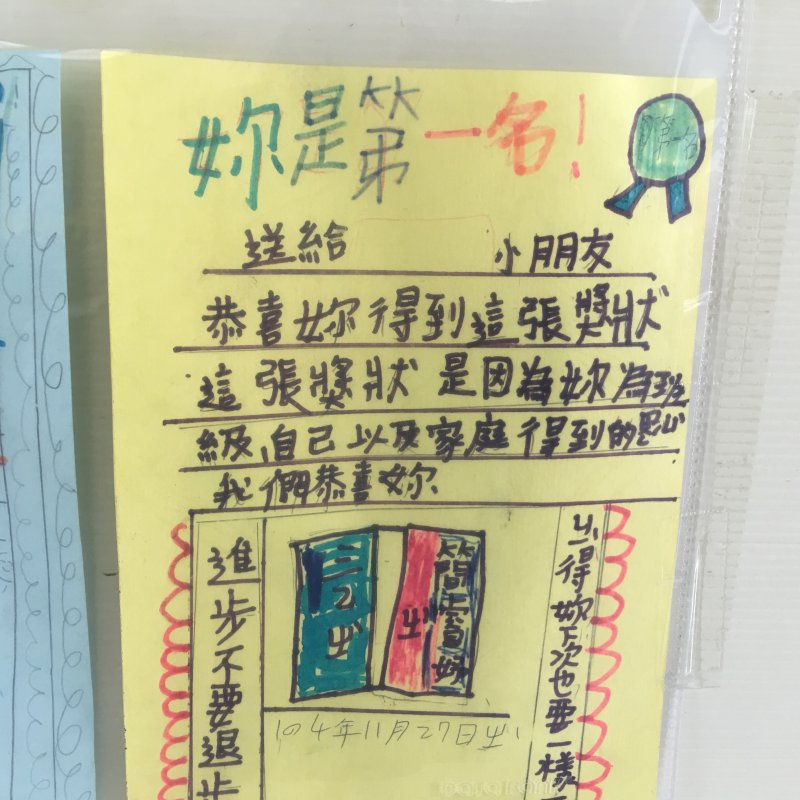 妳是第一名!
第一名
送給 小朋友
恭喜妳得到這張獎狀
這張獎狀是因為妳為班
級,自己以及家庭得到的
我們恭喜妳
進步不要退步
三乙
104年11月27日
得妳下次也要一樣